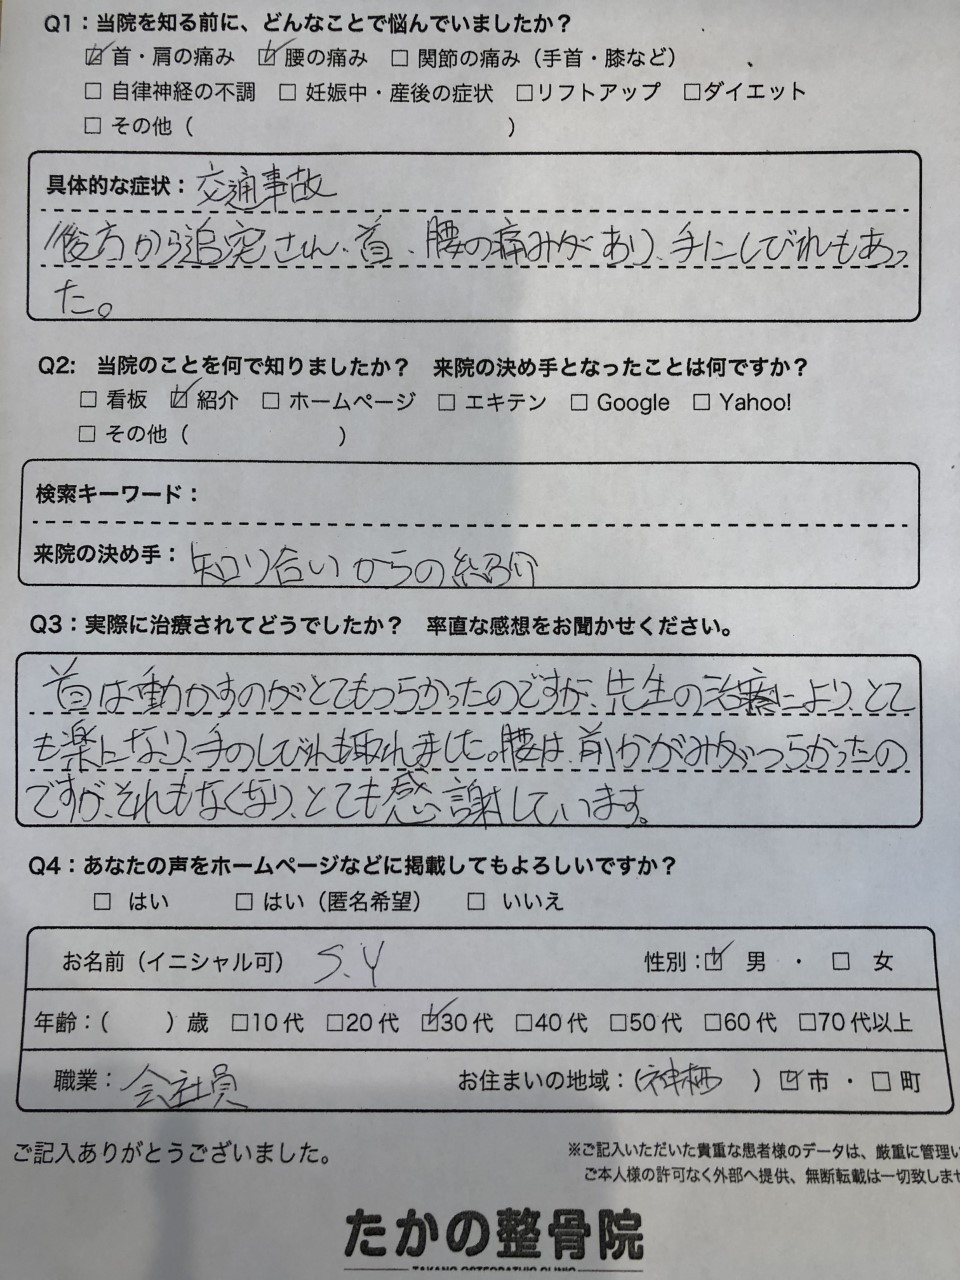 Q1：当院を知る前に、どんなことで悩んでいましたか？
☑ 首・肩の痛み ☑ 腰の痛み □ 関節の痛み（手首・膝など）
□ 自律神経の不調 □ 妊娠中・産後の症状 □リフトアップ □ダイエット
□ その他（ ）
具体的な症状：交通事故
後方から追突され、首、腰の痛みがあり、手にしびれもあっ
た。
Q2: 当院のことを何で知りましたか？ 来院の決め手となったことは何ですか？
□ 看板 ☑ 紹介 □ ホームページ □ エキテン □ Google □ Yahoo!
□ その他（ ）
検索キーワード：
来院の決め手：知り合いからの紹介
Q3：実際に治療されてどうでしたか？ 率直な感想をお聞かせください。
首は動かすのがとてもつらかったのですが、先生の治療により、とて
も楽になり、手のしびれも取れました。腰は、前かがみがつらかったの
ですが、それもなくなり、とても感謝しています。
Q4：あなたの声をホームページなどに掲載してもよろしいですか？
□ はい □ はい（匿名希望） □ いいえ
お名前（イニシャル可） S.Y 性別：☑ 男 ・ □ 女
年齢：（ ）歳 □10代 □20代 ☑30代 □40代 □50代 □60代 □70代以上
職業：会社員 お住まいの地域：（神栖 ）☑市・□町
ご記入ありがとうございました。
※ご記入いただいた貴重な患者様のデータは、厳重に管理い
ご本人様の許可なく外部へ提供、無断転載は一切致しませ
たかの整骨院
TAKANO OSTEOPATHIC CLINIC